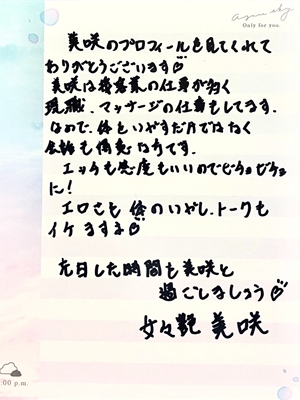 Only for you.
美咲のプロフィールを見てくれて
ありがとうございます♡
美咲は接客業の仕事が多く
現職、マッサージの仕事もしてます。
なので、体をいやすだけではなく
会話も得意な方です。
エッチも感度もいいのでビチョビチョ
に！
エロさも体のいやし、トークも
イケますよ♡
充日した時間を美咲と
過ごしましょう♡
女々艶 美咲
:00 p.m.